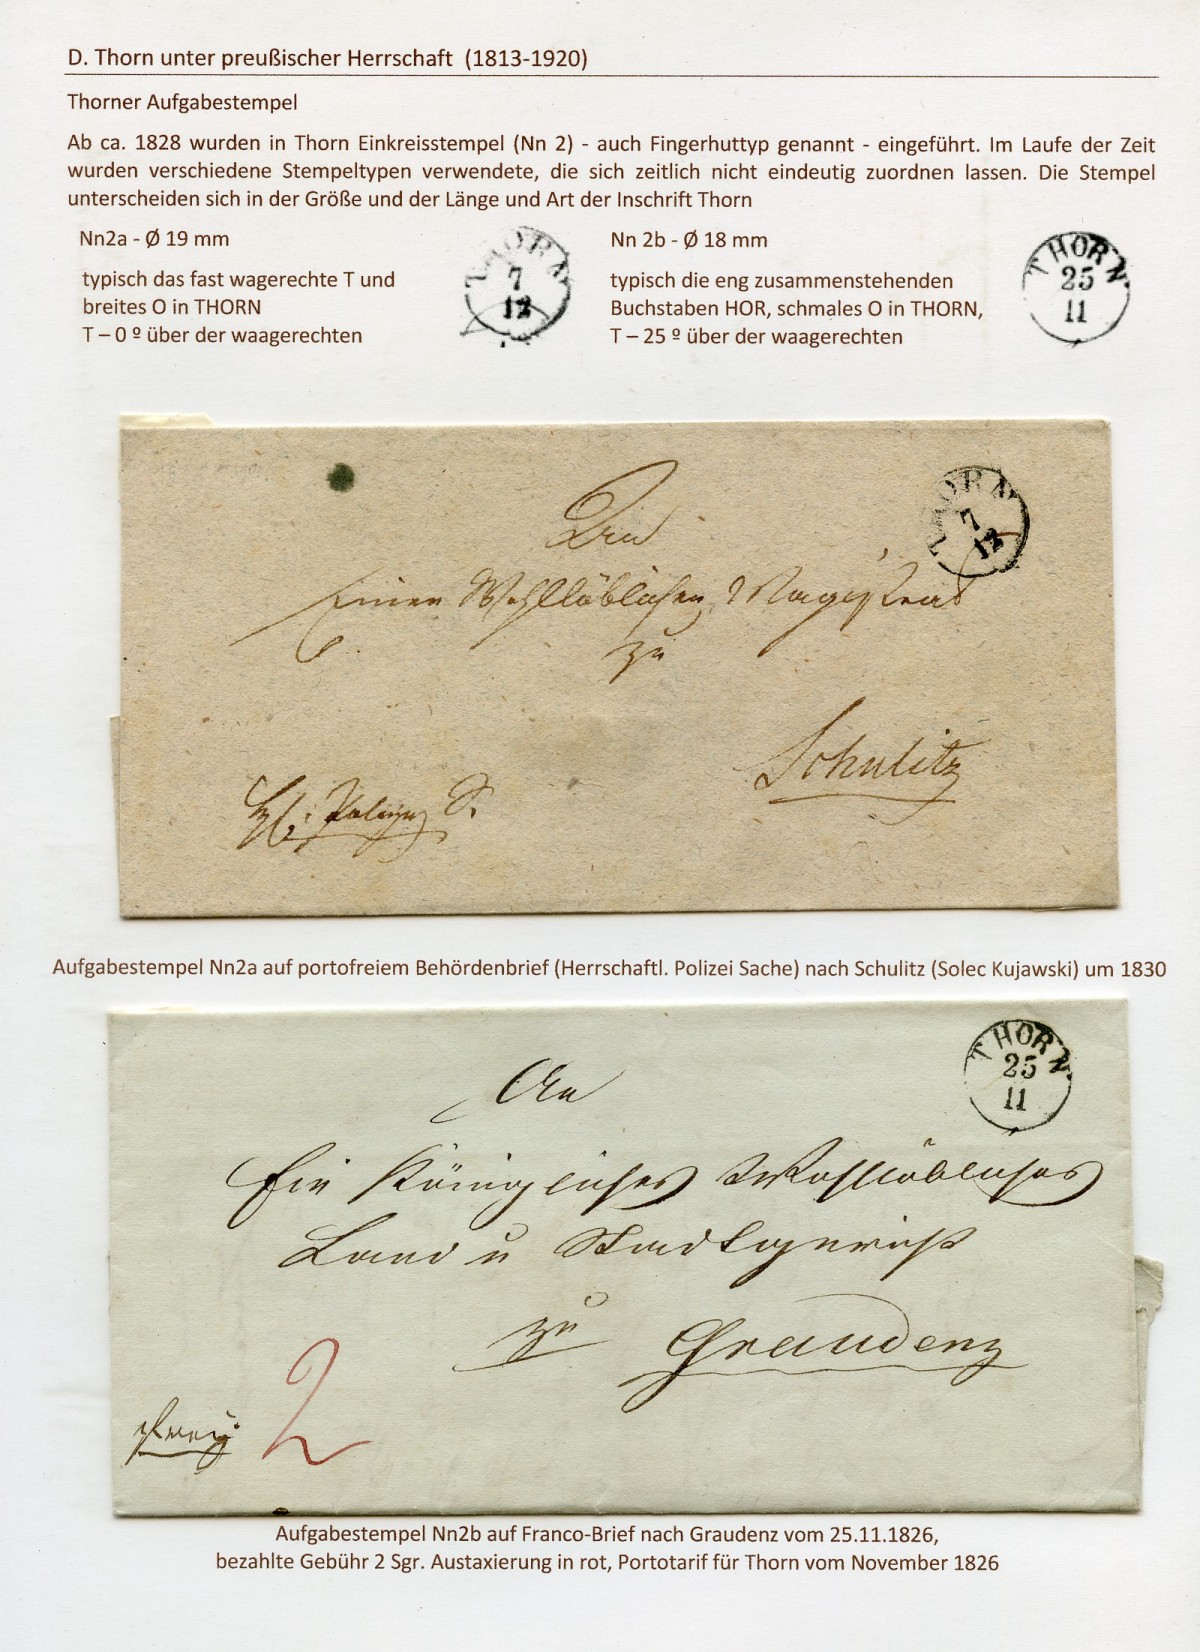 D. Thorn unter preußischer Herrschaft (1813-1920)
Thorner Aufgabestempel
Ab ca. 1828 wurden in Thorn Einkreisstempel (Nn 2) - auch Fingerhuttyp genannt - eingeführt. Im Laufe der Zeit
wurden verschiedene Stempeltypen verwendete, die sich zeitlich nicht eindeutig zuordnen lassen. Die Stempel
unterscheiden sich in der Größe und der Länge und Art der Inschrift Thorn
Nn2a - Ø 19 mm
typisch das fast wagerechte T und
breites O in THORN
T – 0 º über der waagerechten
THORN
7
12
Nn 2b - Ø 18 mm
typisch die eng zusammenstehenden
Buchstaben HOR, schmales O in THORN,
T – 25 º über der waagerechten
THORN
25
11
THORN
7
12
Einen Wohllöblichen Magistrat
zu
Schulitz
Aufgabestempel Nn2a auf portofreiem Behördenbrief (Herrschaftl. Polizei Sache) nach Schulitz (Solec Kujawski) um 1830
THORN
25
11
An
Ein Königliches Wohllöbliches
Land u Stadtgericht
zu Graudenz
frey 2
Aufgabestempel Nn2b auf Franco-Brief nach Graudenz vom 25.11.1826,
bezahlte Gebühr 2 Sgr. Austaxierung in rot, Portotarif für Thorn vom November 1826